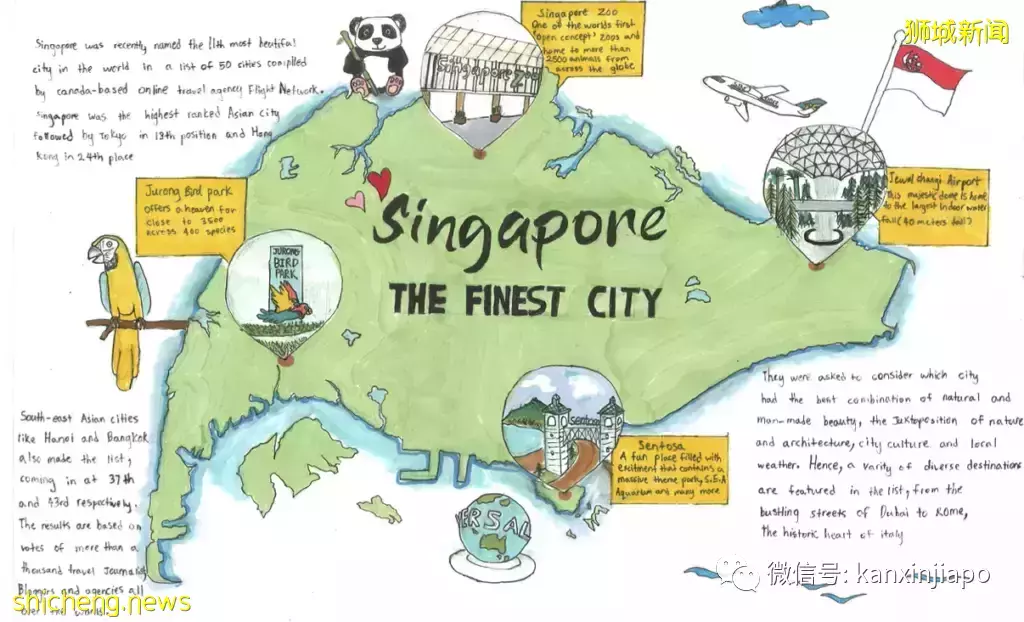 Singapore was recently named the 11th most beutiful
city in the world in a list of 50 cities compiled
by canada-based online travel agency Flight Network.
Singapore was the highest ranked Asian city
followed by Tokyo in 18th position and Hong
Kong in 24th place
Singapore Zoo
One of the worlds first
'open concept' zoos and
home to more than
2500 animals from
across the globe
Singapore Zoo
狮城新闻
Jurong Bird park
offers a heaven for
close to 3500
across 400 species
JURONG
BIRD
PARK
Singapore
THE FINEST CITY
Jewel changi Airport
this majestic dome is home
to the largest indoor water
fall (40 meters tall)
South-east Asian cities
like Hanoi and Bangkok
also made the list,
coming in at 37th
and 43rd respectively.
The results are based on
votes of more than a
thousand travel journalist
Bloggers and agencies all
over the world.
Sentosa
Sentosa
A fun place filled with
excitment that contains a
massive theme park, S.E.A
Aquarium and many more
VERSAL
They were asked to consider which city
had the best combination of natural and
man-made beauty, the Juxtoposition of nature
and architecture, city culture and local
weather. Hence, a varity of diverse destinations
are featured in the list, from the
bustling streets of Dubai to Rome,
the historic heart of italy
微信号: kanxinjiapo
shicheng.news